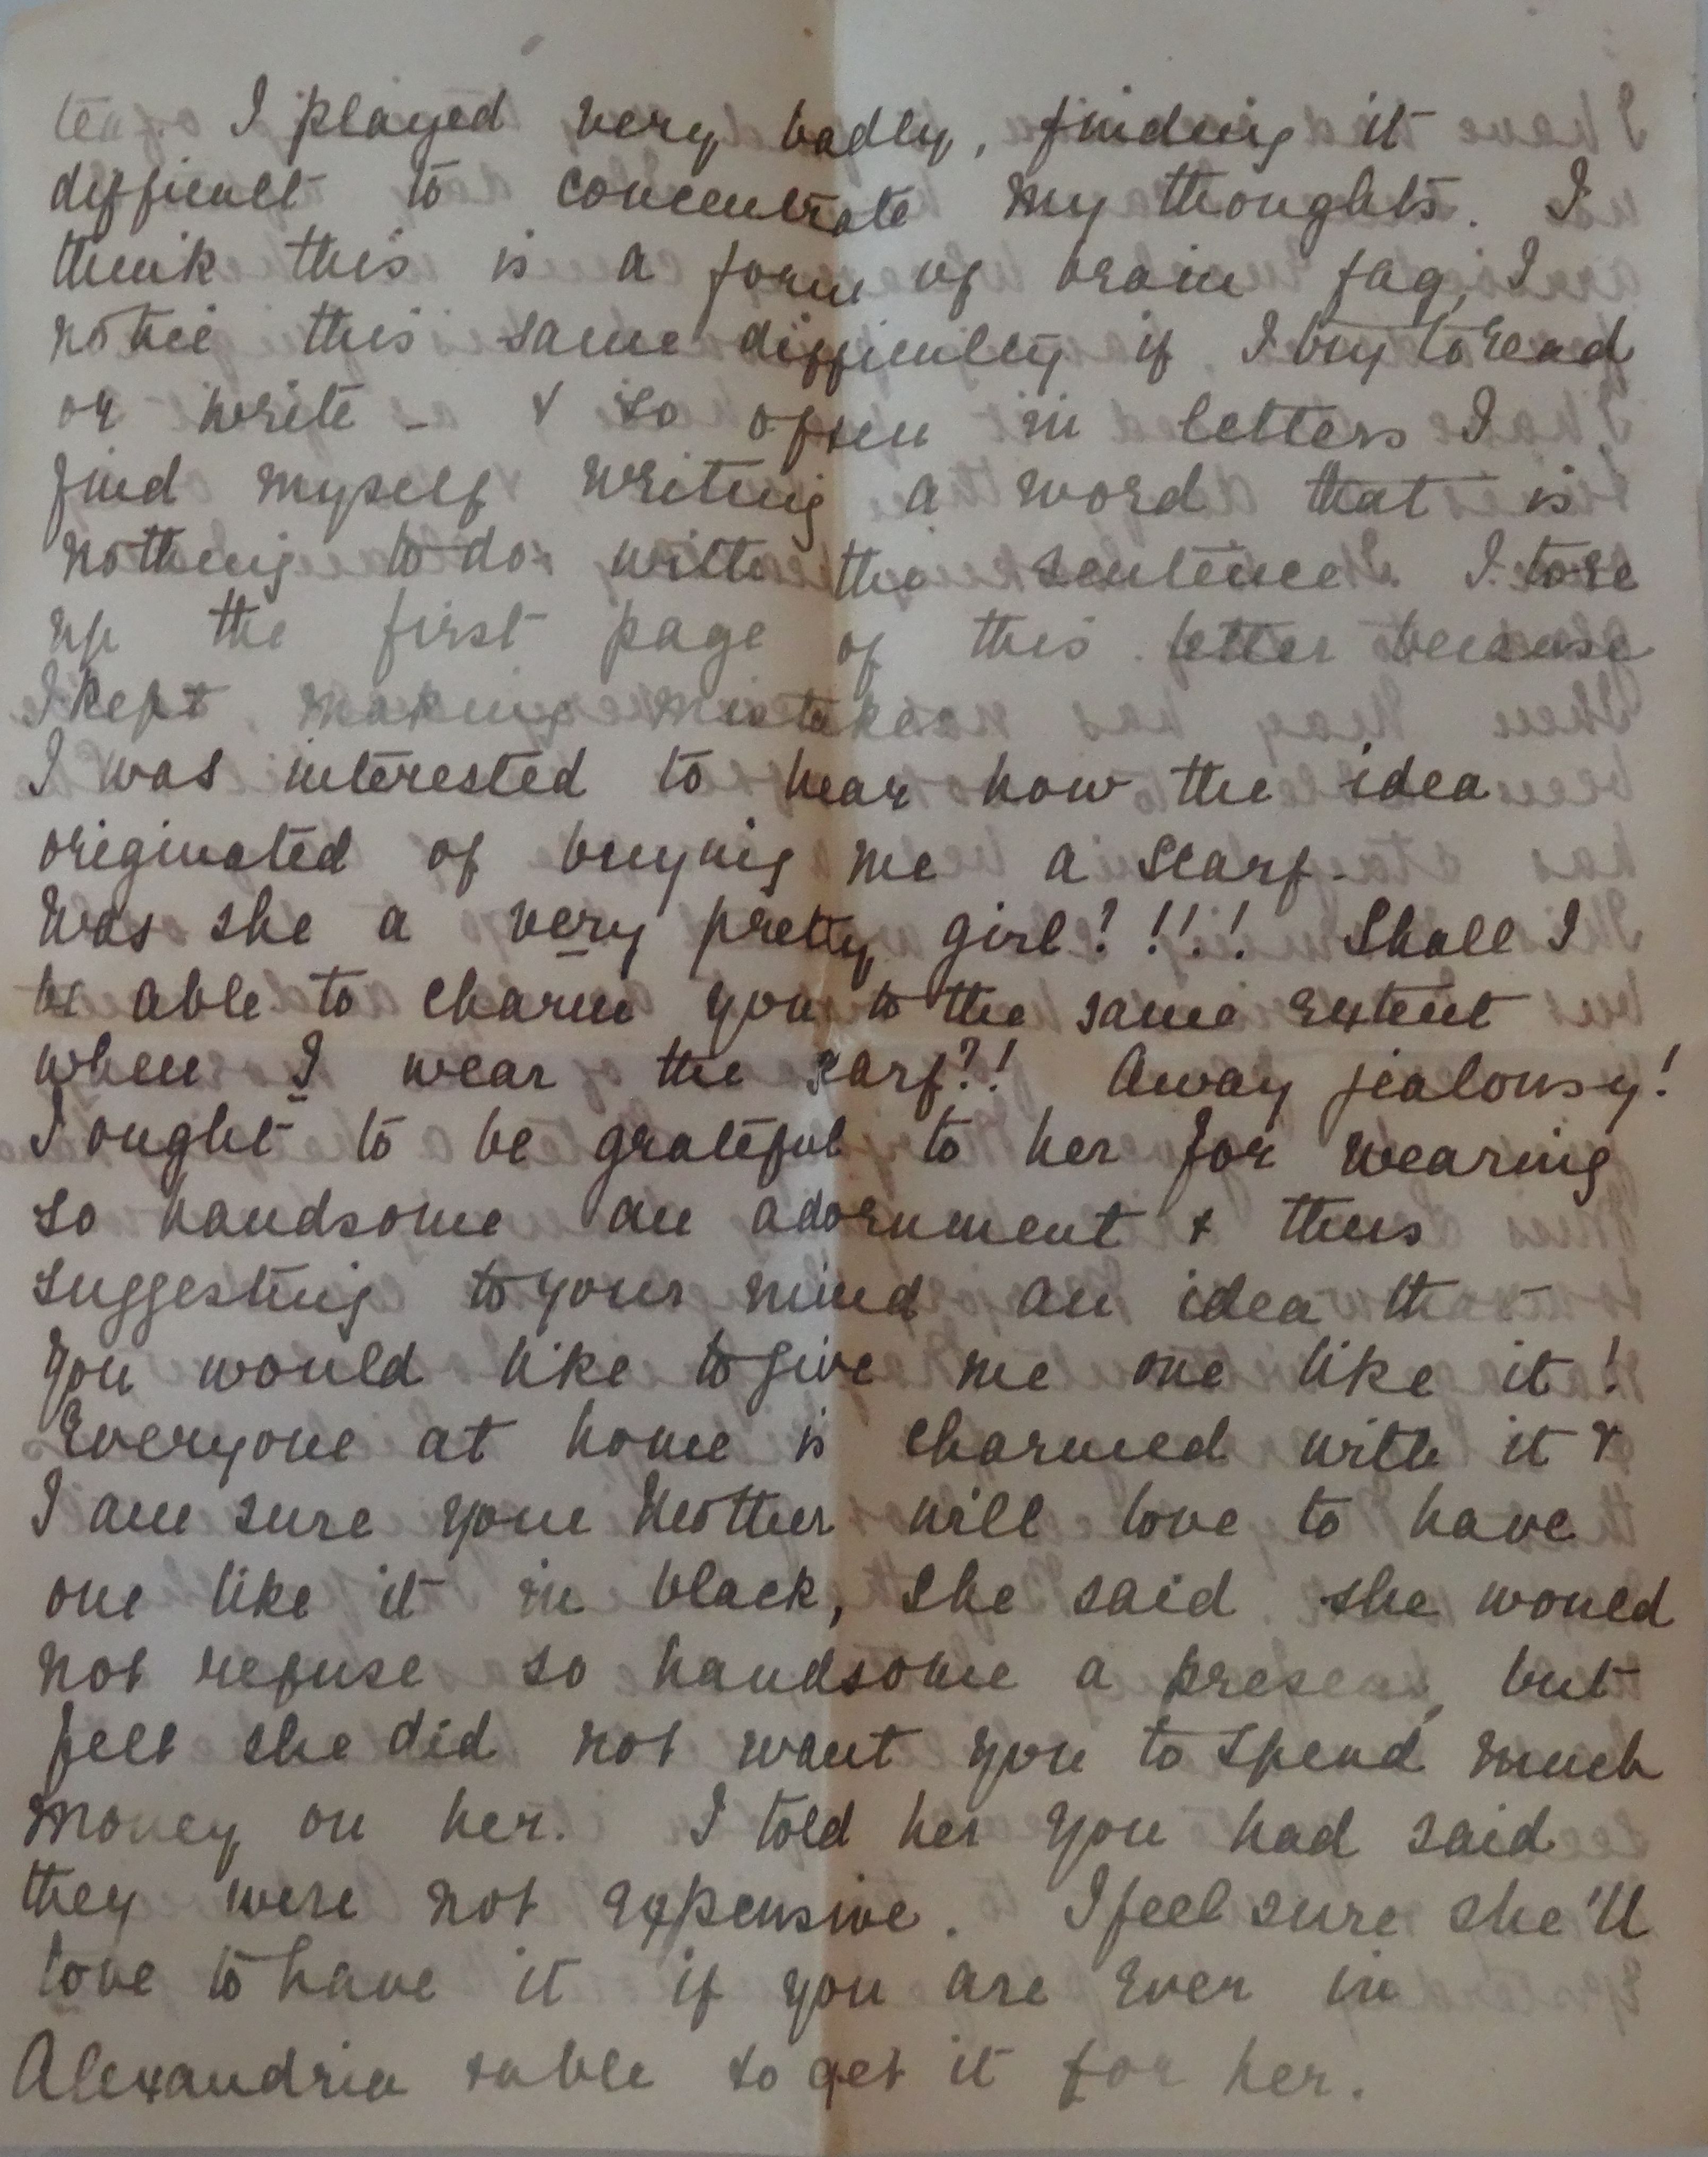 tea. I played very badly, finding it
difficult to concentrate my thoughts. I
think this is a form of brain fag, I
notice this same difficulty if I try to read
or write - & so often in letters I
find myself writing a word that is
nothing to do with the sentence. I tore
up the first page of this letter because
I kept making mistakes.
I was interested to hear how the idea
originated of buying me a scarf.
Was she a very pretty girl? !!! Shall I
be able to charm you to the same extent
when I wear the scarf?! Away jealousy!
I ought to be grateful to her for wearing
so handsome an adornment & thus
suggesting to your mind an idea tht
you would like to give me one like it!
Everyone at home is charmed with it &
I am sure your Mother will love to have
one like it in black, she said she would
not refuse so handsome a present, but
felt she did not want you to spend much
money on her. I told her you had said
they were not expensive. I feel sure she'll
love to have it if you are ever in
Alexandria & able to get it for her.